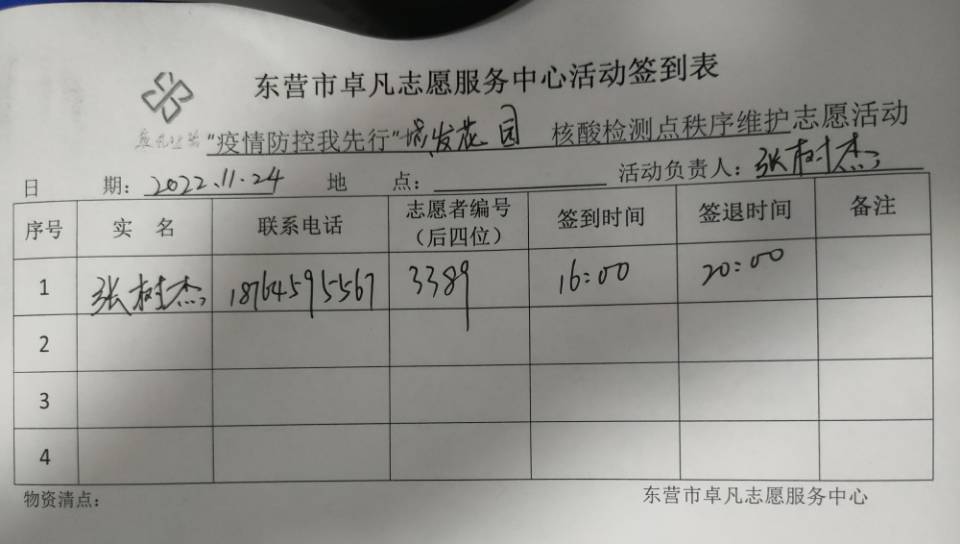 东营市卓凡志愿服务中心活动签到表
卓凡公益
"疫情防控我先行"城发花园 核酸检测点秩序维护志愿活动
日 期：2022.11.24 地 点： 活动负责人：张树杰
序号 实 名 联系电话 志愿者编号（后四位） 签到时间 签退时间 备注
1 张树杰 18764595567 3389 16:00 20:00
2
3
4
物资清点： 东营市卓凡志愿服务中心